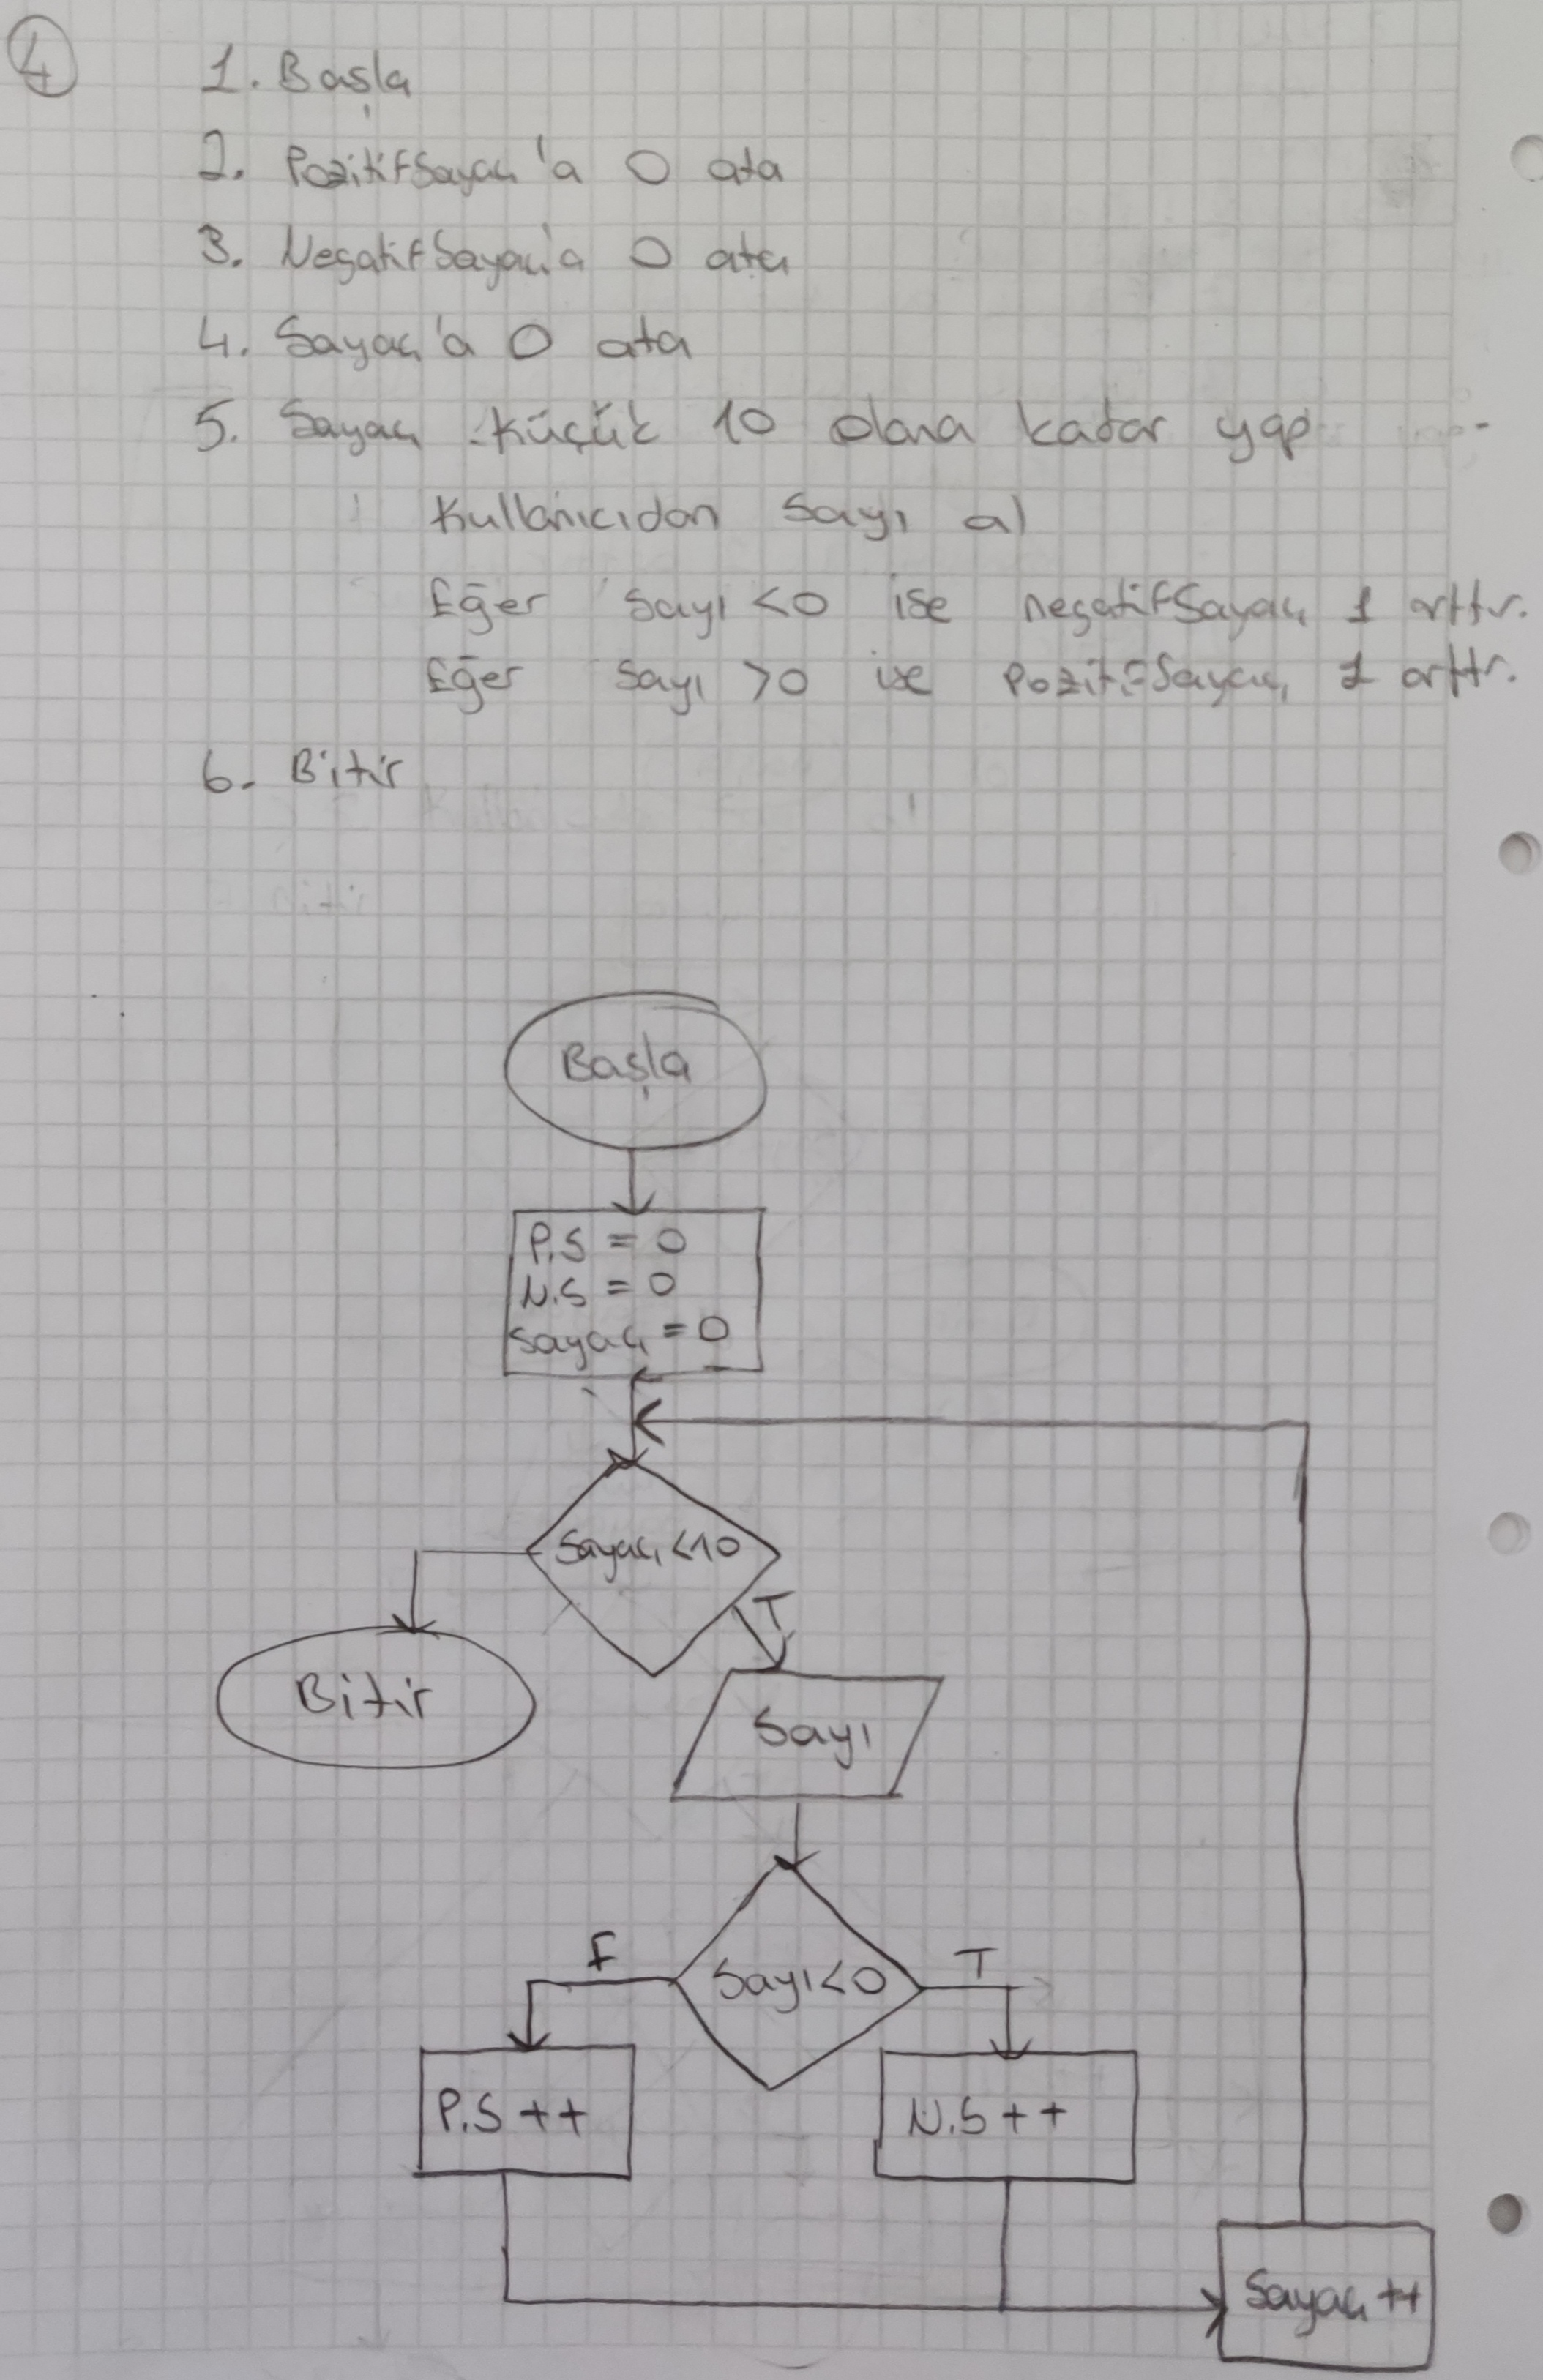 4
1. Başla
2. PozitifSayaç'a 0 ata
3. NegatifSayaç'a 0 ata
4. Sayaç'a 0 ata
5. Sayaç küçük 10 olana kadar yap
Kullanıcıdan Sayı al
Eğer Sayı <0 ise negatifSayaç 1 arttır.
Eğer Sayı >0 ise PozitifSayaç 1 arttr.
6. Bitir
Başla
P.S = 0
N.S = 0
Sayaç = 0
Sayaç <10
T
Bitir
Sayı
F
Sayı<0
T
P.S ++
N.S ++
Sayaç ++